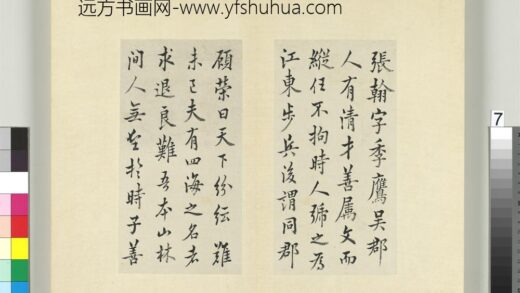 远方书画网-www.yfshuhua.com
張翰字季鷹吳郡
人有清才善属文而
縱任不拘時人號之為
江東步兵後謂同郡
顧榮曰天下紛紜難
未已夫有四海之名者
求退良難吾本山林
間人無望於時子善
7